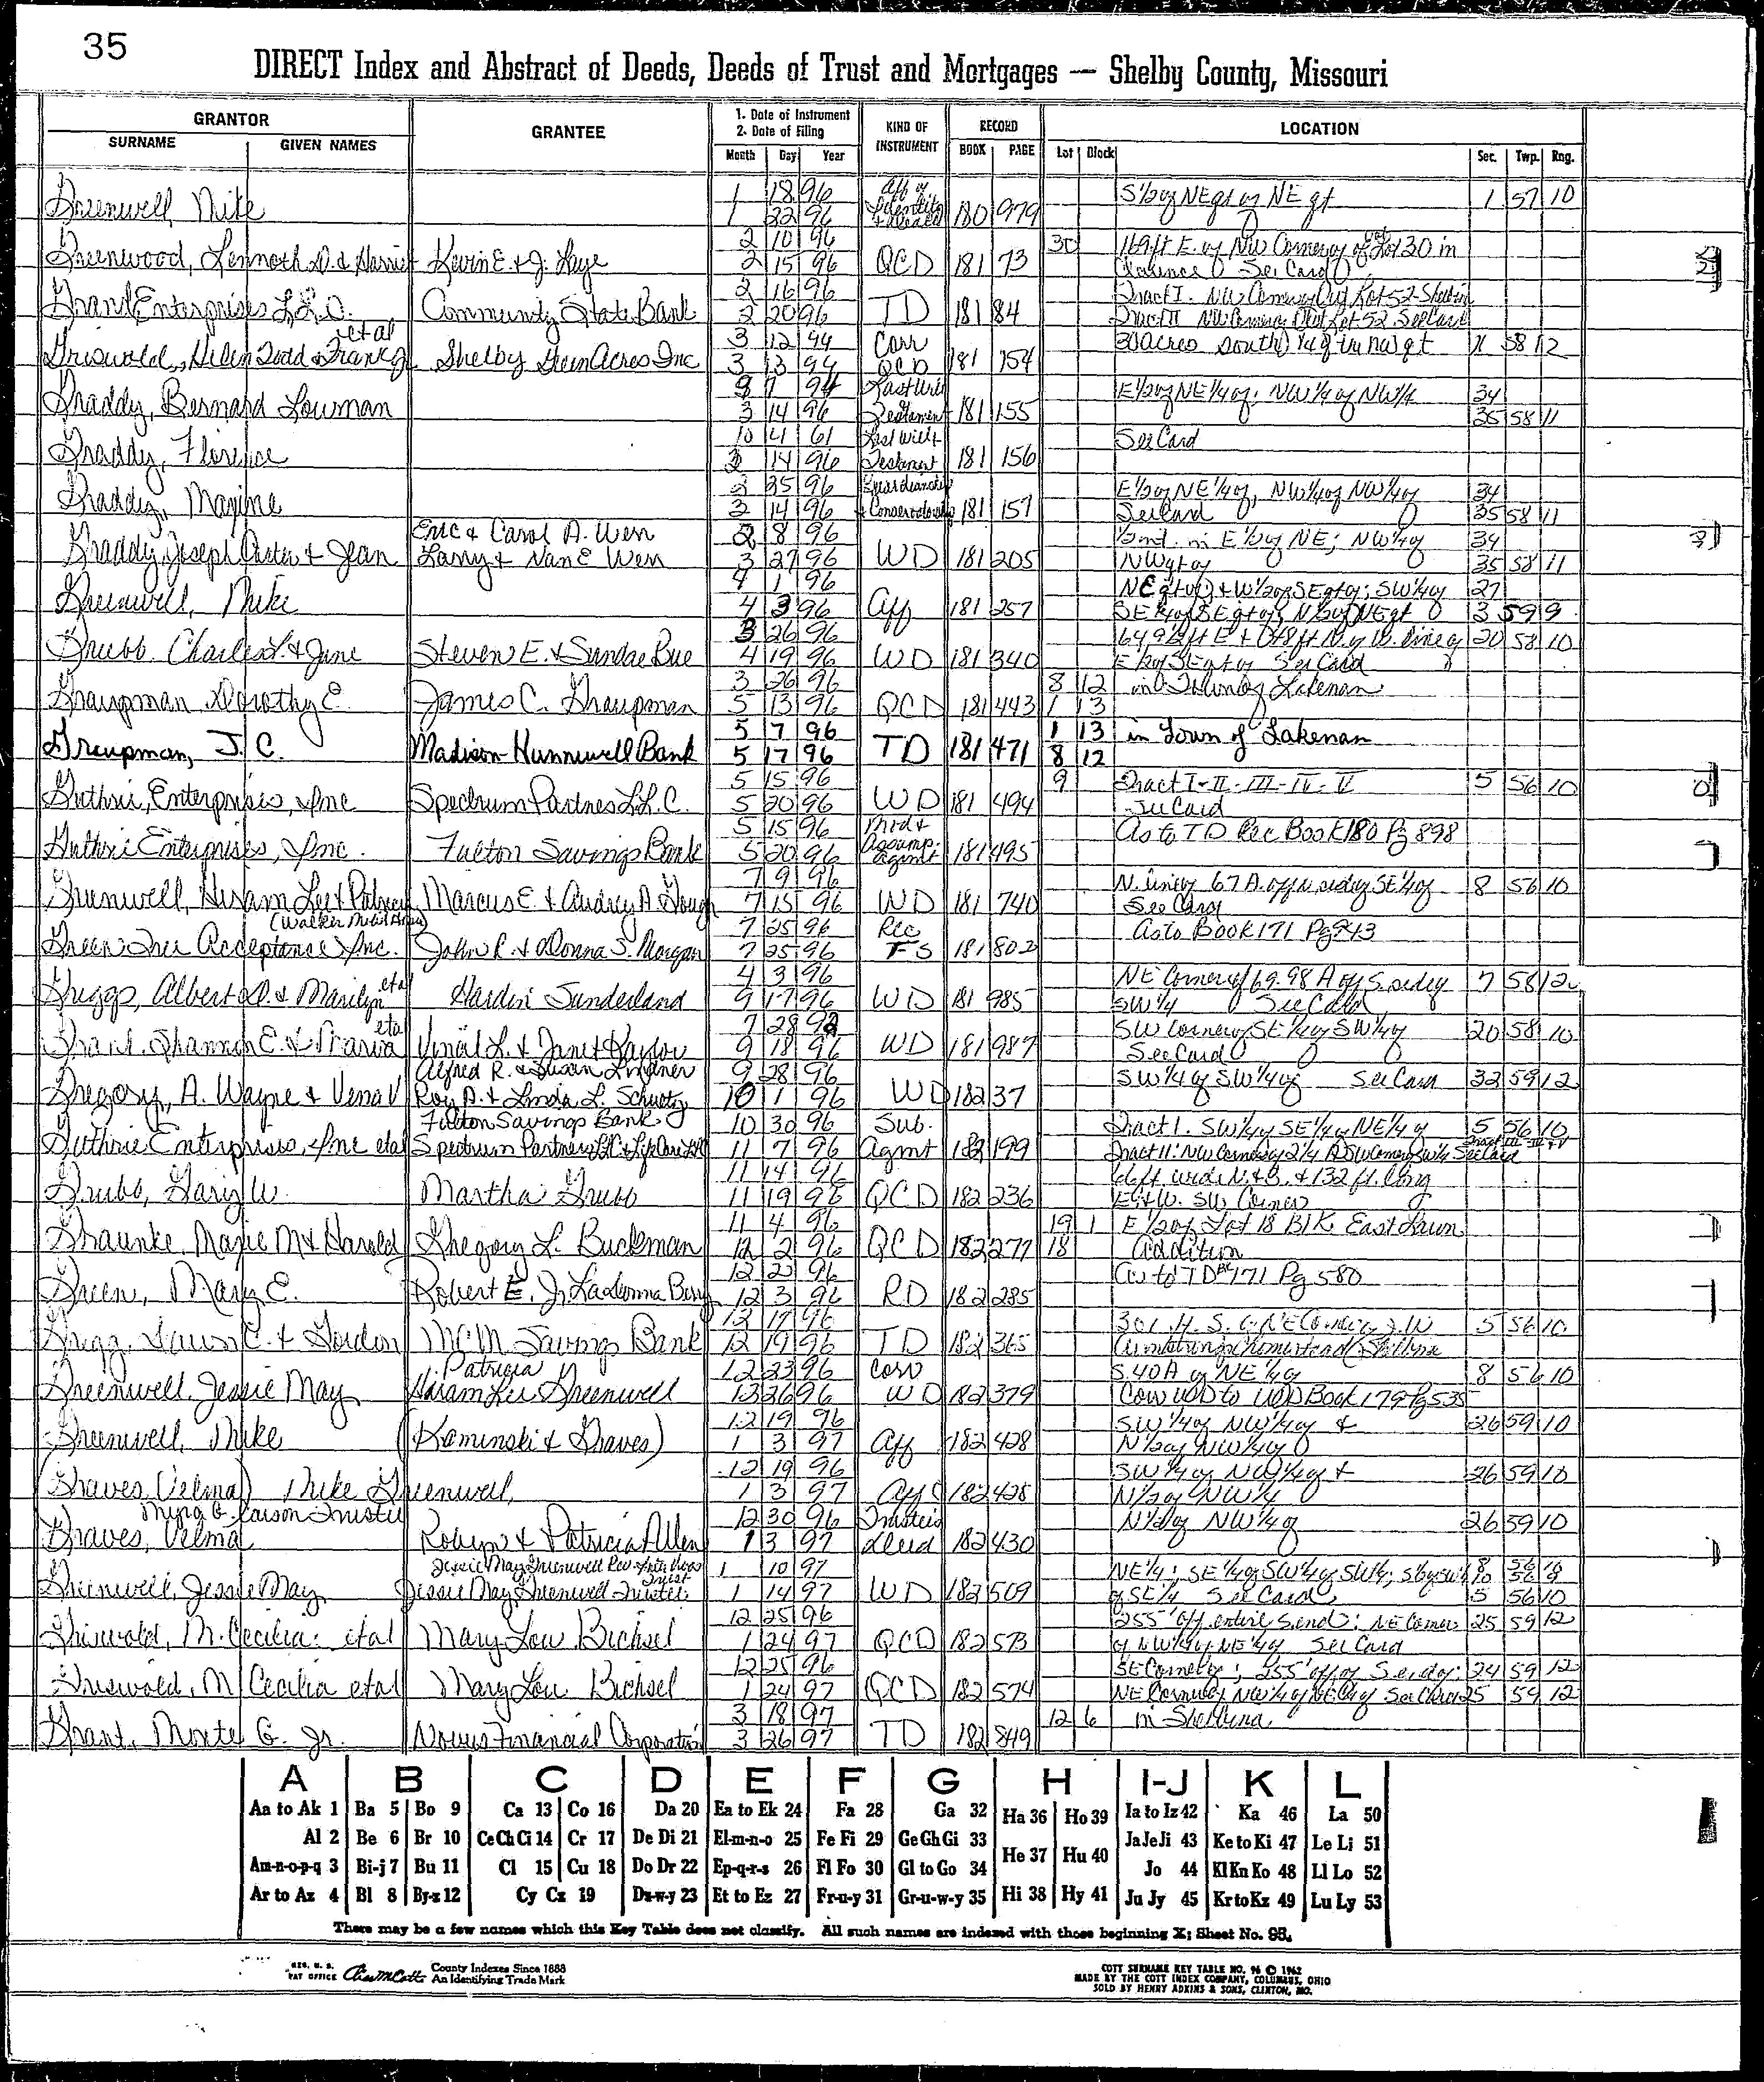 35
DIRECT Index and Abstract of Deeds, Deeds of Trust and Mortgages — Shelby County, Missouri
GRANTOR
SURNAME GIVEN NAMES
GRANTEE
1. Date of Instrument
2. Date of Filing
Month Day Year
KIND OF INSTRUMENT
RECORD
BOOK PAGE
LOCATION
Lot Block Sec. Twp. Rng.
Greenwell, Mike 1 18 96 Aff of S 1/2 of NE qt of NE qt 1 57 10
1 22 96 Identity 180 979
Greenwood, Kenneth D. & Harriet Kevin E. & J. Kaye 2 10 96 QCD 181 73 30 169 ft E. of NW Corner of Lot 30 in
2 15 96 Clarence See Card
Grand Enterprises L.L.C. Community State Bank 2 16 96 TD 181 84 Tract I. NW Corner Out Lot 52
2 20 96 Tract II NW Corner Out Lot 52 See Card
Griswold, Helen Todd & Frank J et al Shelby Green Acres Inc 3 12 94 Corr 30 acres south 58 12
3 13 94 QCD 181 154
Graddy, Bernard Lowman 9 7 94 Last Will E 1/2 of NE 1/4 of; NW 1/4 of NW 1/4 34
3 14 96 Testament 181 155 35 58 11
Graddy, Florence 10 4 61 Last Will & See Card
3 14 96 Testament 181 156
Graddy, Maxine 2 25 96 Guardianship E 1/2 of NE 1/4 of, NW 1/4 of NW 1/4 of 34
3 14 96 & Conservatorship 181 157 See Card 35 58 11
Graddy, Joseph Carter & Jean Eric & Carol A. Wen 2 8 96 WD 181 205 1/2 int. in E 1/2 of NE; NW 1/4 of 34
Larry & Nan E Wen 3 27 96 NW qt of 35 58 11
Greenwell, Mike 4 1 96 Aff 181 257 NE qt of & W 1/2 of SE qt of; SW 1/4 of 27
4 3 96 SE 1/4 of SE qt of; N 1/2 of NE qt 3 59 9
Grubb Charles L. & Jane Steven E. & Sundae Bue 3 26 96 WD 181 340 20 58 10
4 19 96 E 1/2 of SE qt of See Card
Graupman Dorothy E. James C. Graupman 3 26 96 QCD 181 443 8 12 in Town of Lakenan
5 13 96 1 13
Graupman, J. C. Madison Hunnewell Bank 5 7 96 TD 181 471 1 13 in Town of Lakenan
5 17 96 8 12
Guthrie, Enterprises, Inc Spectrum Partners L.L.C. 5 15 96 WD 181 494 9 Tract I-II-III-IV-V 5 56 10
5 20 96 See Card
Guthrie Enterprises, Inc. Fulton Savings Bank 5 15 96 Mod & As to TD Rec Book 180 Pg 898
5 20 96 Assump. Agmt 181 495
Greenwell, Hiram Lee & Patricia Marcus E. & Audrey A. Gough 7 9 96 WD 181 740 N. line of 67 A. off N. side of SE 1/4 of 8 56 10
7 15 96 See Card
Green Tree Acceptance Inc. John R. & Donna S. Morgan 7 25 96 Rec As to Book 171 Pg 943
7 25 96 FS 181 802
Griggs, Albert D. & Marilyn etal Hardin Sunderland 4 3 96 WD 181 985 NE Corner of 69.98 A off S. side of 7 58 12
9 17 96 SW 1/4 See Card
Grant, Shannon E. & Maria etal Vincil L. & Janet Kaylor 7 28 92 WD 181 987 SW Corner of SE 1/4 of SW 1/4 of 20 58 10
9 18 96 See Card
Gregory, A. Wayne & Vena V Alfred R. & Susan Lindner 9 28 96 WD 182 37 SW 1/4 of SW 1/4 of See Card 32 59 12
Roy D. & Linda L. Schultz 10 1 96
Guthrie Enterprises, Inc etal Fulton Savings Bank 10 30 96 Sub. Tract 1. SW 1/4 of SE 1/4 of NE 1/4 of 5 56 10
Spectrum Partners LLC & LifeCare LLC 11 7 96 Agmt 182 199 Tract II: NW Corner See Card
Grubb, Gary W. Martha Grubb 11 14 96 QCD 182 236 66 ft. wide N. & S. & 132 ft. long
11 19 96 E. & W. SW Corner
Graunke, Marie M & Harold Gregory L. Buckman 11 4 96 QCD 182 277 19 1 E 1/2 of Lot 18 Blk East Lawn
12 2 96 18 Addition
Green, Mary E. Robert E. Jr. LaDonna Berry 12 2 96 RD 182 285 As to TD Bk 171 Pg 580
12 3 96
Grigg, C. & Gordon MCM Savings Bank 12 17 96 TD 182 365 5 56 10
12 19 96
Greenwell, Jessie May Patricia 12 23 96 Corr S. 40 A of NE 1/4 of 8 56 10
Hiram Lee Greenwell 12 26 96 WD 182 379 Corr WD to WD Book 179 Pg 535
Greenwell, Mike (Kaminski & Graves) 12 19 96 Aff 182 428 SW 1/4 of NW 1/4 of & 26 59 10
1 3 97 N 1/2 of NW 1/4 of
(Graves Velma) Mike Greenwell, 12 19 96 Aff 182 428 SW 1/4 of NW 1/4 of & 26 59 10
1 3 97 N 1/2 of NW 1/4
Myra G. Carson Trustee 12 30 96 Trustees N 1/2 of NW 1/4 of 26 59 10
Graves, Velma Robyn & Patricia Allen 1 3 97 Deed 182 430
Greenwell, Jessie May Jessie May Greenwell Rev Inter Vivos Trust 1 10 97 WD 182 509 NE 1/4; SE 1/4 of SW 1/4 of SW 1/4; 8 56 10
Jessie May Greenwell Trustee 1 14 97 of SE 1/4 See Card 5 56 10
Griswold, M. Cecilia etal Mary Lou Bichsel 12 25 96 QCD 182 573 255' off entire S. end; NE Corner 25 59 12
1 24 97 of NW 1/4 of NE 1/4 of See Card
Griswold, M Cecilia etal Mary Lou Bichsel 12 25 96 QCD 182 574 SE Corner of; 255' off of S. side of; 24 59 12
1 24 97 NE Corner of NW 1/4 of NE 1/4 of See Card 25 59 12
Grant, Monte G. Jr. Novus Financial Corporation 3 18 97 TD 182 849 12 6 in Shelbina
3 26 97
A B C D E F G H I-J K L
Aa to Ak 1 Ba 5 Bo 9 Ca 13 Co 16 Da 20 Ea to Ek 24 Fa 28 Ga 32 Ha 36 Ho 39 Ia to Iz 42 Ka 46 La 50
Al 2 Be 6 Br 10 Ce Ch Ci 14 Cr 17 De Di 21 El-m-n-o 25 Fe Fi 29 Ge Gh Gi 33 He 37 Hu 40 Ja Je Ji 43 Ke to Ki 47 Le Li 51
Am-n-o-p-q 3 Bi-j 7 Bu 11 Cl 15 Cu 18 Do Dr 22 Ep-q-r-s 26 Fl Fo 30 Gl to Go 34 Jo 44 Kl Kn Ko 48 Ll Lo 52
Ar to Az 4 Bl 8 By-z 12 Cy Cz 19 Dz-w-y 23 Et to Ez 27 Fr-u-y 31 Gr-u-w-y 35 Hi 38 Hy 41 Ju Jy 45 Kr to Kz 49 Lu Ly 53
There may be a few names which this Key Table does not classify. All such names are indexed with those beginning X; Sheet No. 98.
REG. U. S. PAT OFFICE County Indexes Since 1888 An Identifying Trade Mark
COTT SURNAME KEY TABLE NO. 96 © 1962
MADE BY THE COTT INDEX COMPANY, COLUMBUS, OHIO
SOLD BY HENRY ADKINS & SONS, CLINTON, MO.